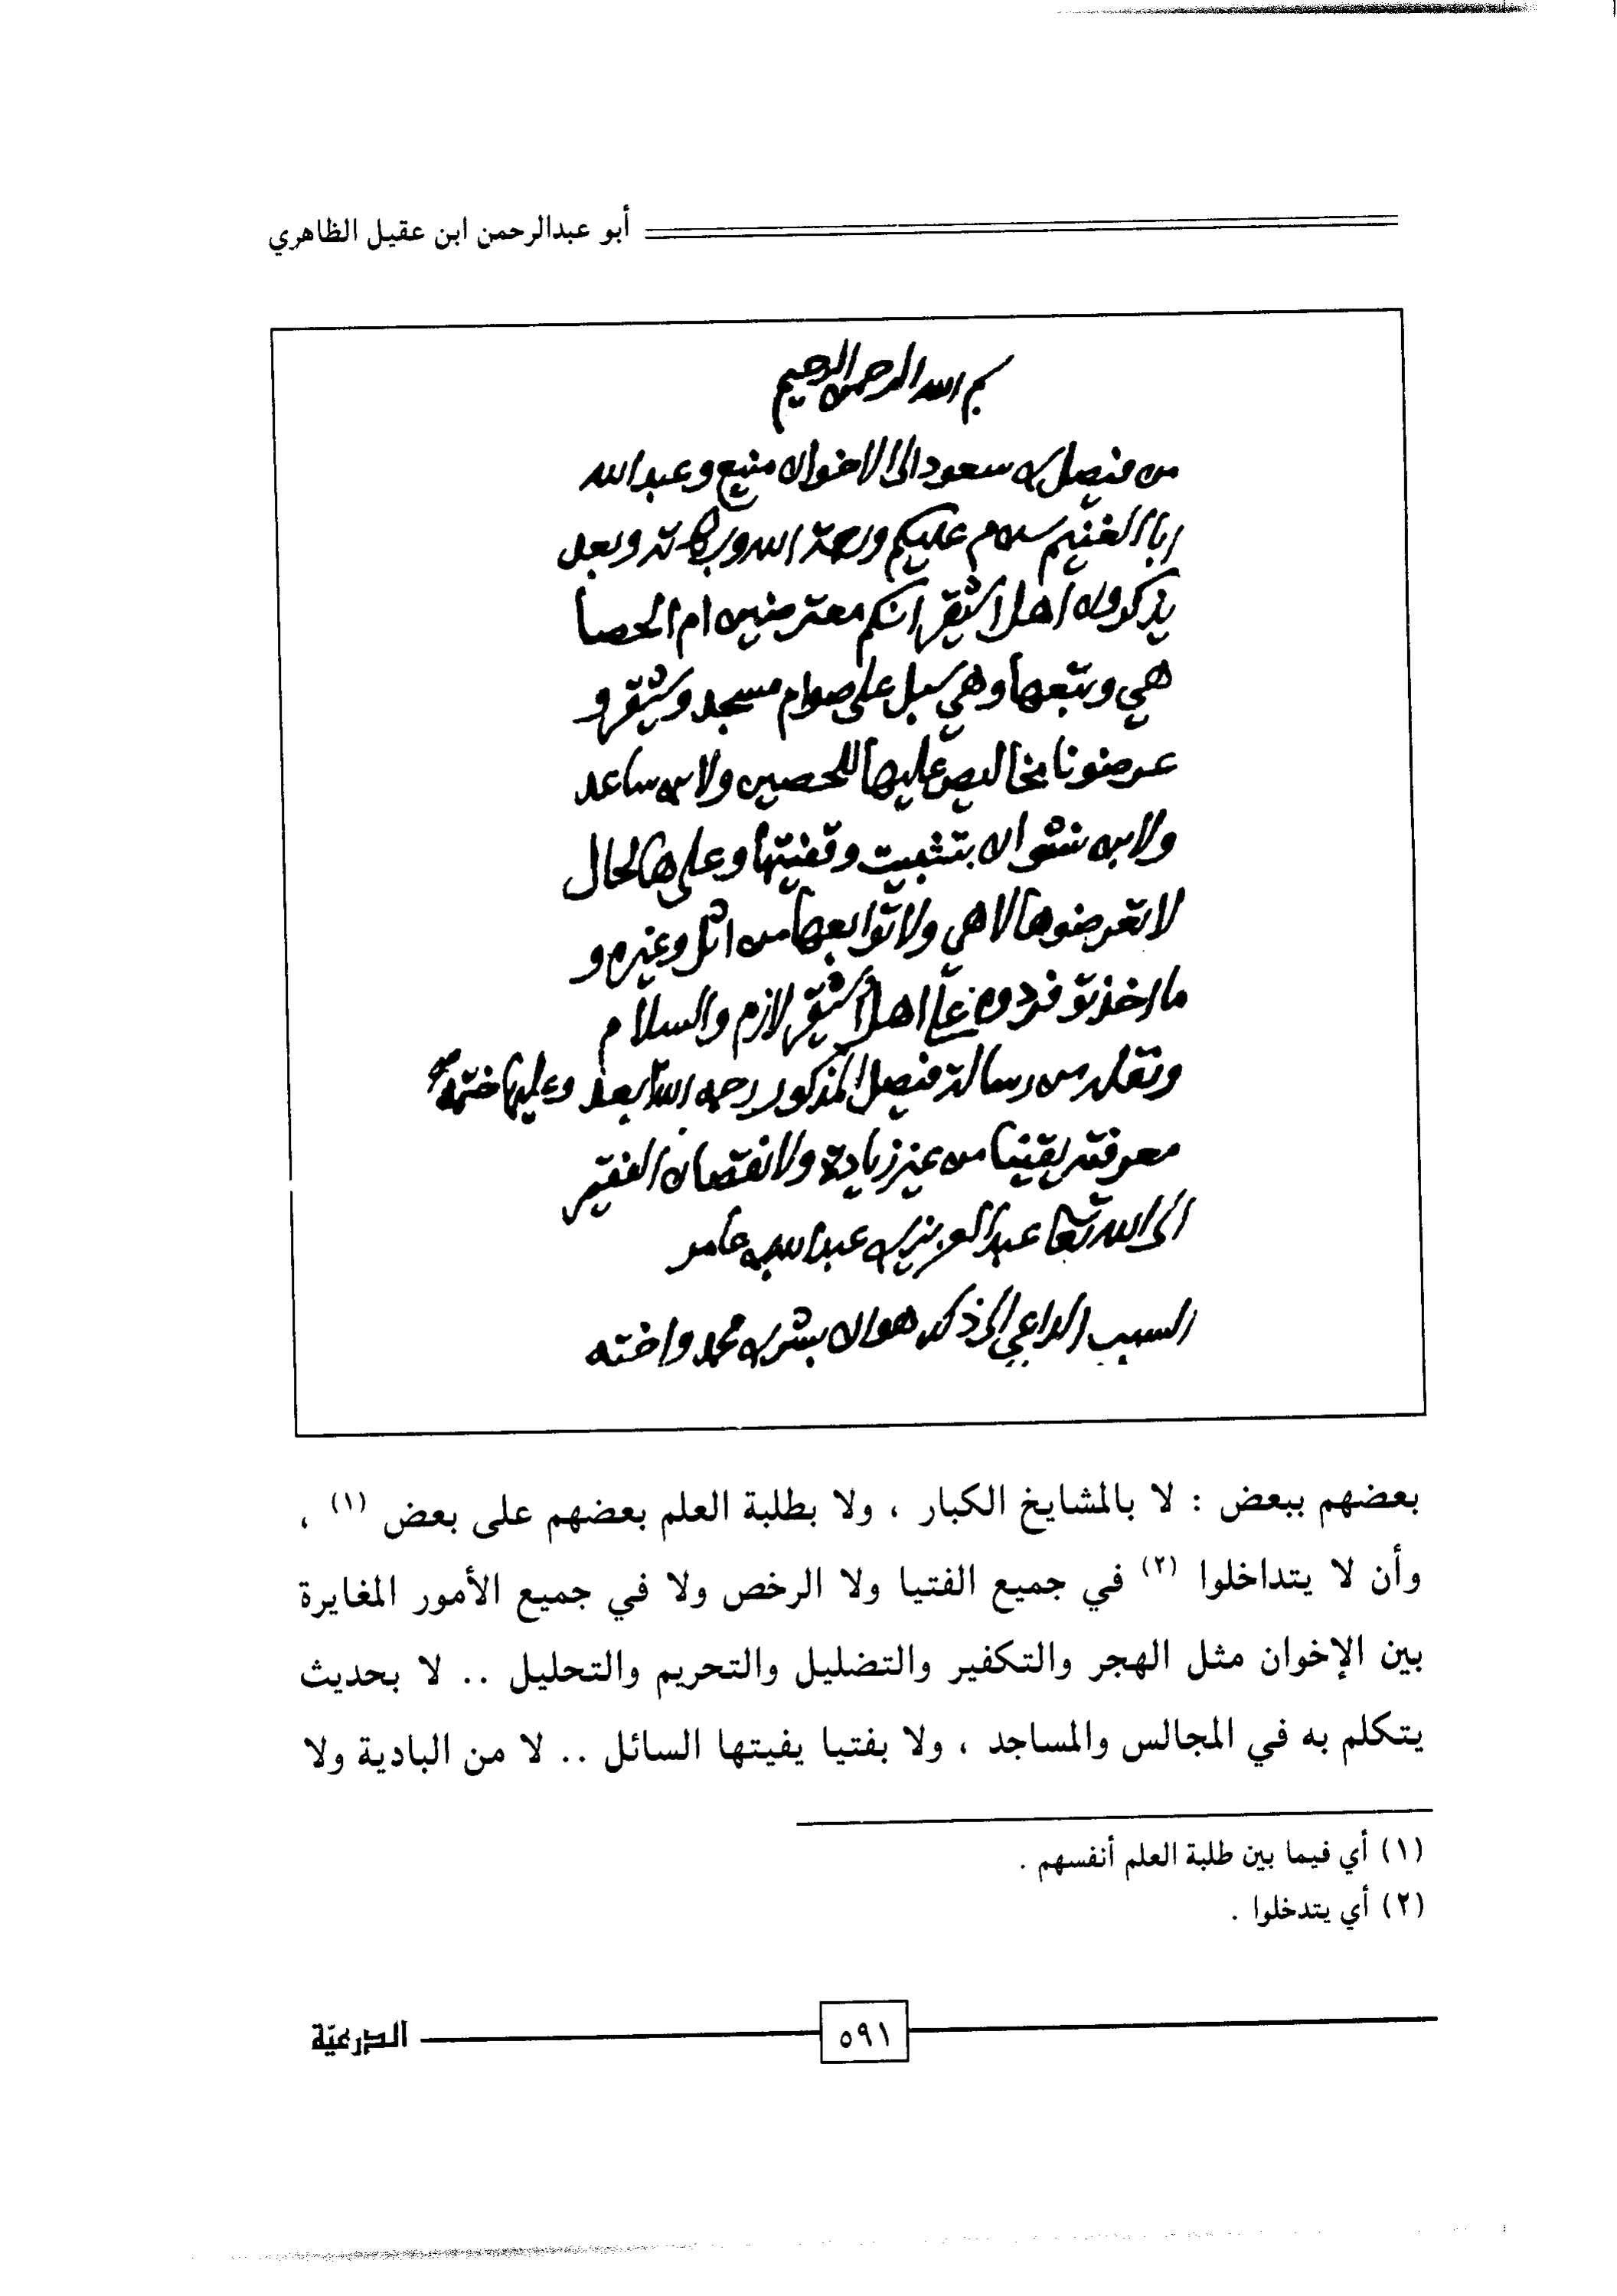 أبو عبدالرحمن ابن عقيل الظاهري
بسم الله الرحمن الرحيم
من فيصل بن سعود الى الاخوان منيع وعبدالله
ابا الغنيم سلام عليكم ورحمة الله وبركاته وبعد
يذكرون اهل اشيقر انكم معترضين ام الحصا
هي وتبعها وهي سبل على صوام مسجد وشيقر و
عرضونا بخاليص عليها للحصين ولابن ساعد
ولابن نشوان بتثبيت وقفيتها وعلى هالحال
لا تعرضوها لا هي ولا توابعها من اثل وغيره و
ما اخذتو فردوه على اهل اشيقر لازم والسلام
ونقله من رسالة فيصل المذكور رحمه الله بعد وعليها ختمه
معرفته يقينا من غير زيادة ولا نقصان الفقير
الى الله تعا عبدالعزيز بن عبدالله بن عامر
السبب الداعي الى ذكر هو ان بشر بن محمد واخته
بعضهم ببعض : لا بالمشايخ الكبار ، ولا بطلبة العلم بعضهم على بعض (١) ،
وأن لا يتداخلوا (٢) في جميع الفتيا ولا الرخص ولا في جميع الأمور المغايرة
بين الإخوان مثل الهجر والتكفير والتضليل والتحريم والتحليل .. لا بحديث
يتكلم به في المجالس والمساجد ، ولا بفتيا يفيتها السائل .. لا من البادية ولا
(١) أي فيما بين طلبة العلم أنفسهم .
(٢) أي يتدخلوا .
٥٩١
الدرعيّة